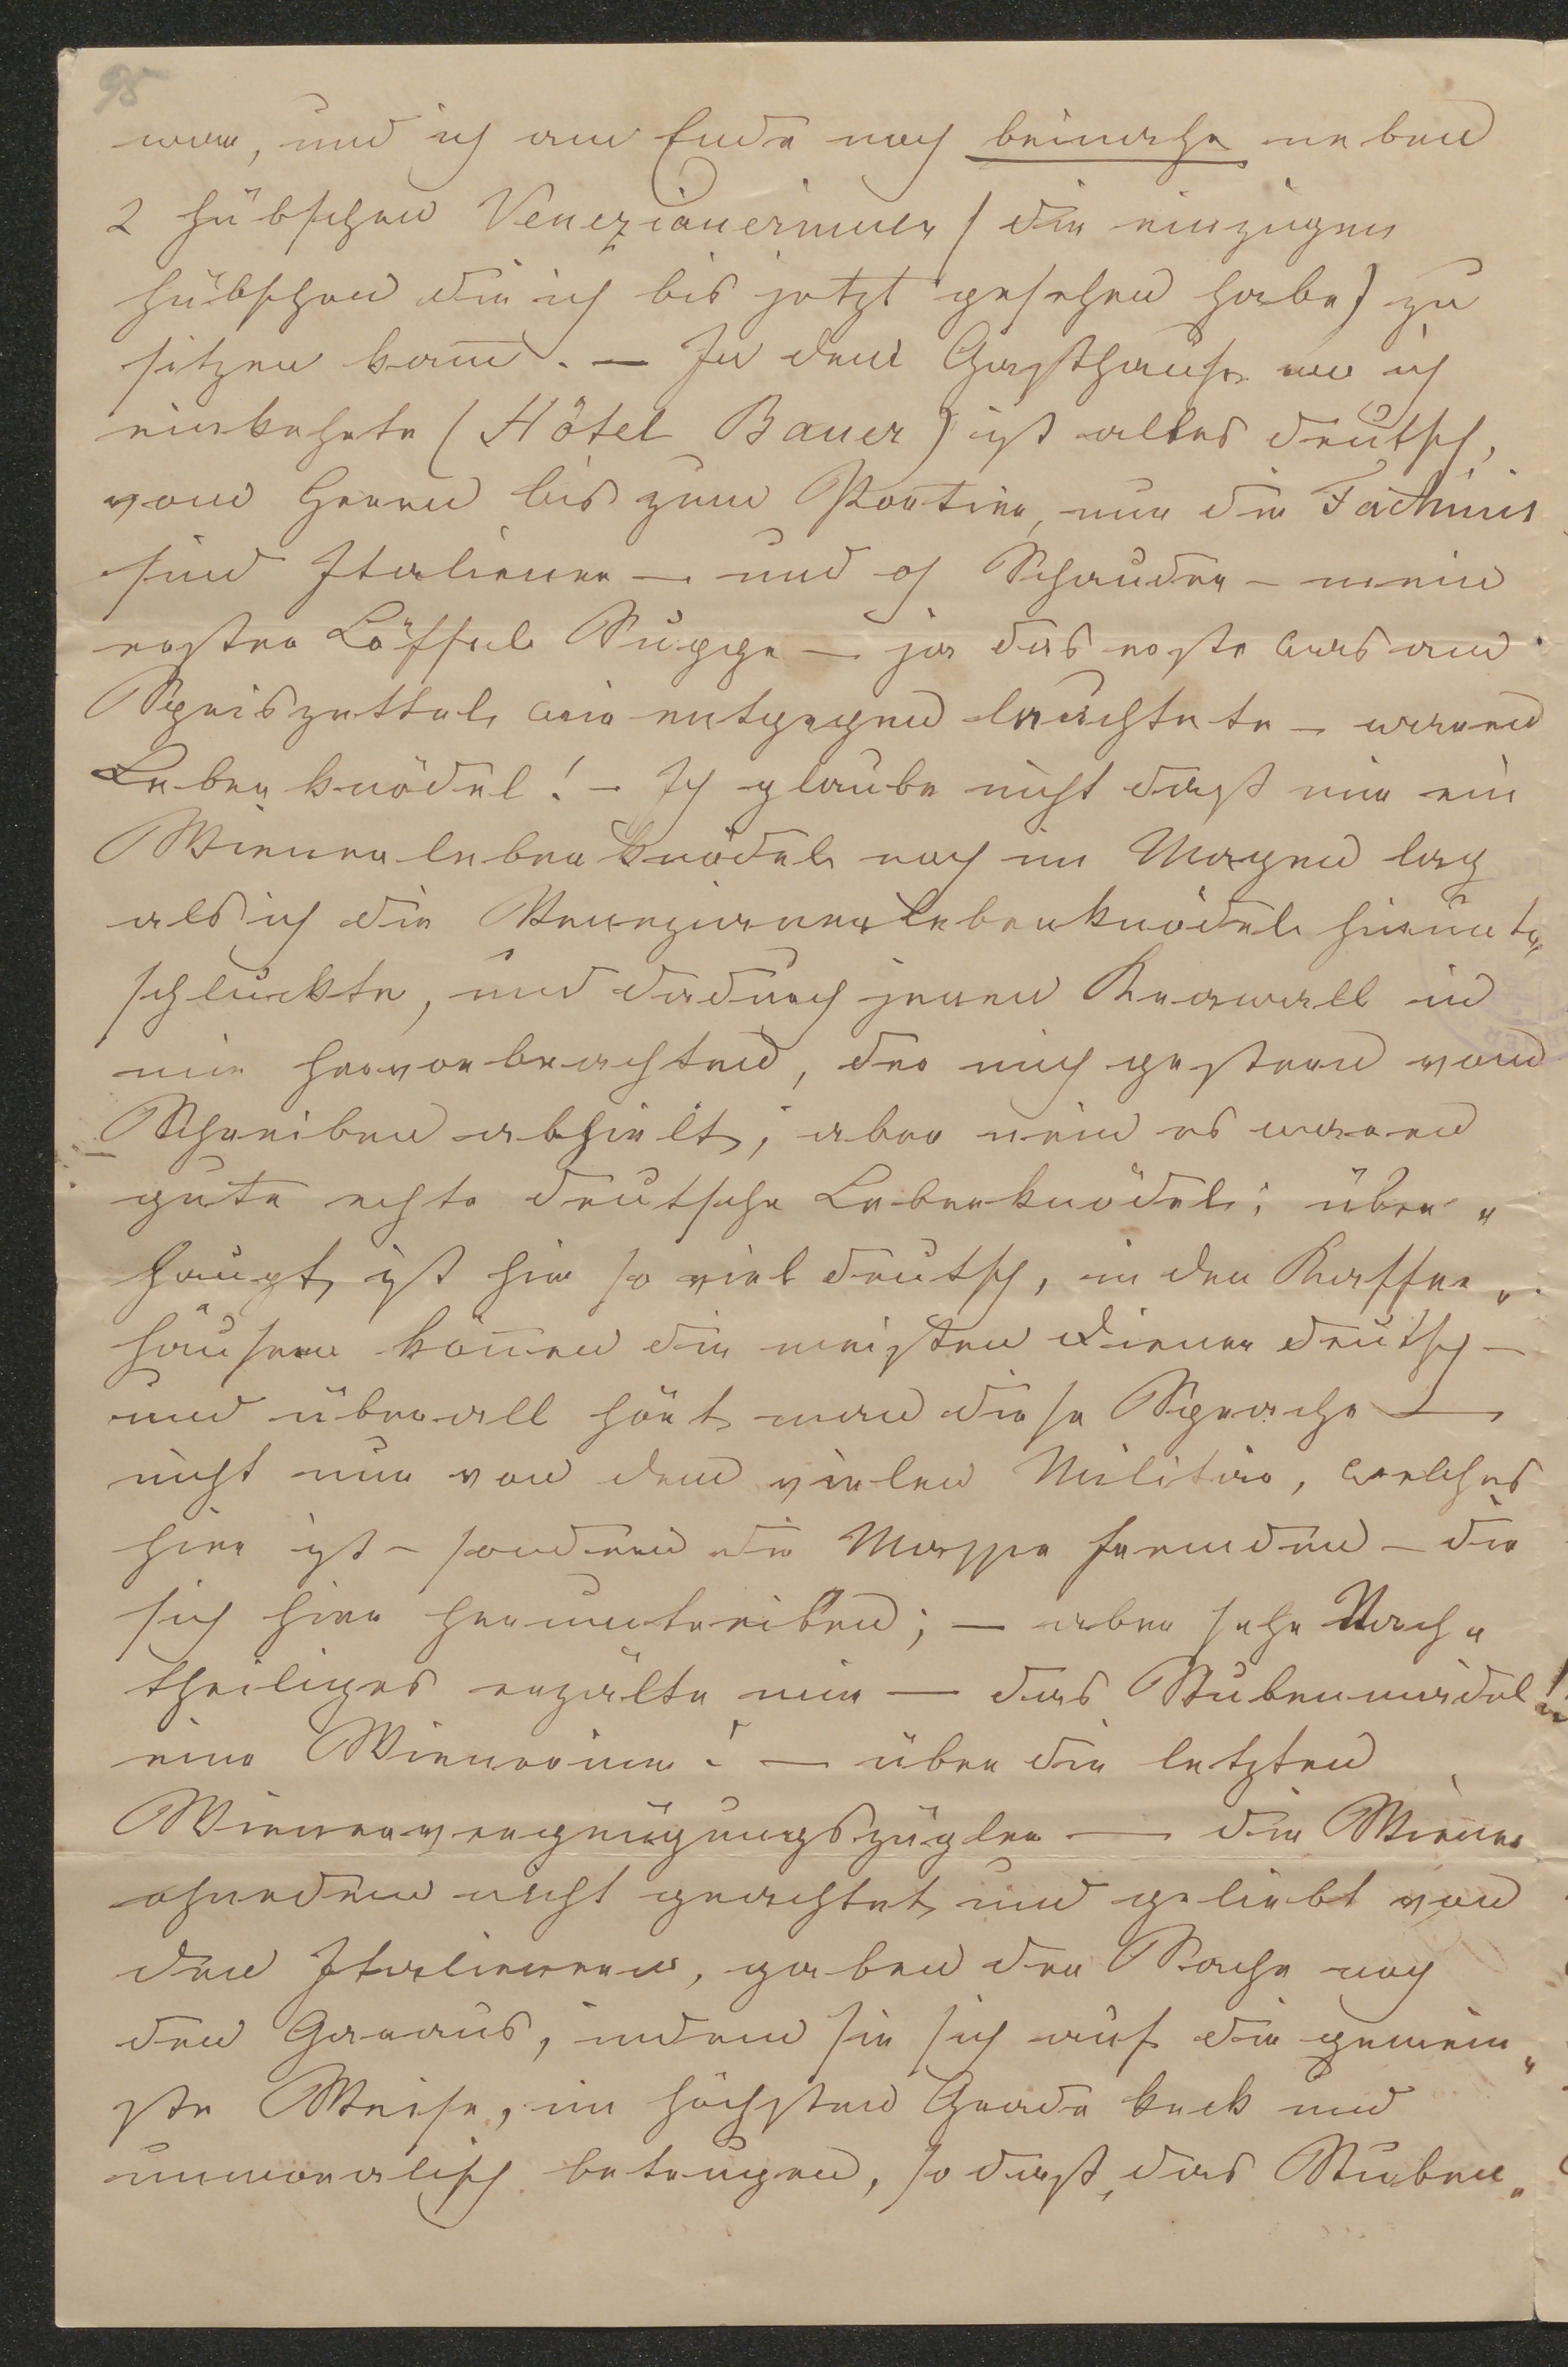 95
war, und ich am Ende noch beinahe neben
2 hübschen Venezianerinnen (die einzigen
hübschen die ich bis jetzt gesehen habe) zu
sitzen kam̄. — In dem Gasthause wo ich
einkehrte (Hôtel Bauer) ist alles deutsch,
vom Herrn bis zum Portier, nur die Fachinis
sind Italiener — und oh Schauder — mein
erster Löffel Suppe — ja das erste was am
Speiszettel mir entgegen leuchtete — waren
Leberknödel! — Ich glaube nicht dasß mir ein
Wienerleberknödel noch im Magen lag
als ich die Venezianerleberknödel hinunter„
schluckte, und dadurch jenen Krawall in
mir hervorbrachten, der mich gestern vom
Schreiben abhielt; aber nein es waren
gute echte deutsche Leberknödel; über„
haupt ist hier so viel deutsch, in den Kaffee„
häusern kön̄en die meisten Diener deutsch —
und überall hört man diese Sprache —
nicht nur von dem vielen Militär, welches
hier ist — sondern die Masse Fremden — die
sich hier herumtreiben; — aber sehr Nach„
theiliges erzälte mir — das Stubenmädel!
eine Wienerinn! — über die letzten
Wienervergnügungszügler — die Wiener
ohnedem nicht geachtet und geliebt von
den Italienern, gaben der Sache noch
den Garaus, indem sie sich auf die gemein„
ste Weise, im höchsten Grade keck und
unmoralisch betrugen, so dasß das Stuben„